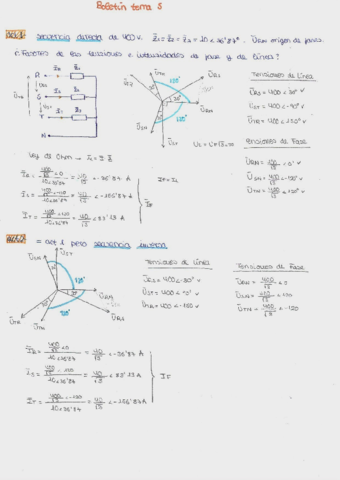 Boletín tema 5
Act.1: secuencia directa de 400 V. Z̄1 = Z̄2 = Z̄3 = 10 < 36'87º. Ūrn origen de fases.
¿Fasores de las tensiones e intensidades de fase y de línea?
R
S
T
N
120º
30º
Tensiones de Línea
ŪRS = 400 < 30º V
ŪST = 400 < -90º V
ŪTR = 400 < 150º V
Tensiones de Fase
ŪRN = 400/√3 < 0º V
ŪSN = 400/√3 < -120º V
ŪTN = 400/√3 < 120º V
Ley de Ohm
IF = IL
ĪR = 400/√3 < 0 / 10 < 36'87 = 40/√3 < -36'87 A
ĪS = 400/√3 < -120 / 10 < 36'87 = 40/√3 < -156'87 A
ĪT = 400/√3 < 120 / 10 < 36'87 = 40/√3 < 83'13 A
IF
Act.2: = act 1 pero secuencia inversa
Tensiones de Línea
ŪRS = 400 < -30º V
ŪST = 400 < 90º V
ŪTR = 400 < -150 V
Tensiones de Fase
ŪRN = 400/√3 < 0
ŪSN = 400/√3 < 120
ŪTN = 400/√3 < -120
ĪR = 400/√3 < 0 / 10 < 36'87 = 40/√3 < -36'87 A
ĪS = 400/√3 < 120 / 10 < 36'87 = 40/√3 < 83'13 A
ĪT = 400/√3 < -120 / 10 < 36'87 = 40/√3 < -156'87 A
IF